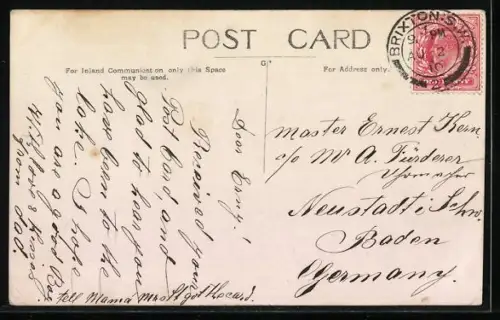 POST CARD
For Inland Communication only this Space
may be used.
For Address only.
BRIXTON. S.W.
Dear Erny!
Received your
Post Card, and
glad to hear you
have been to the
lake. I hope
you are a good Boy
With love & kisses
from dad.
tell Mama got the card.
Master Ernest Kern
c/o Mr A. Fürderer
Uhrmacher
Neustadt i Schw.
Baden
Germany.